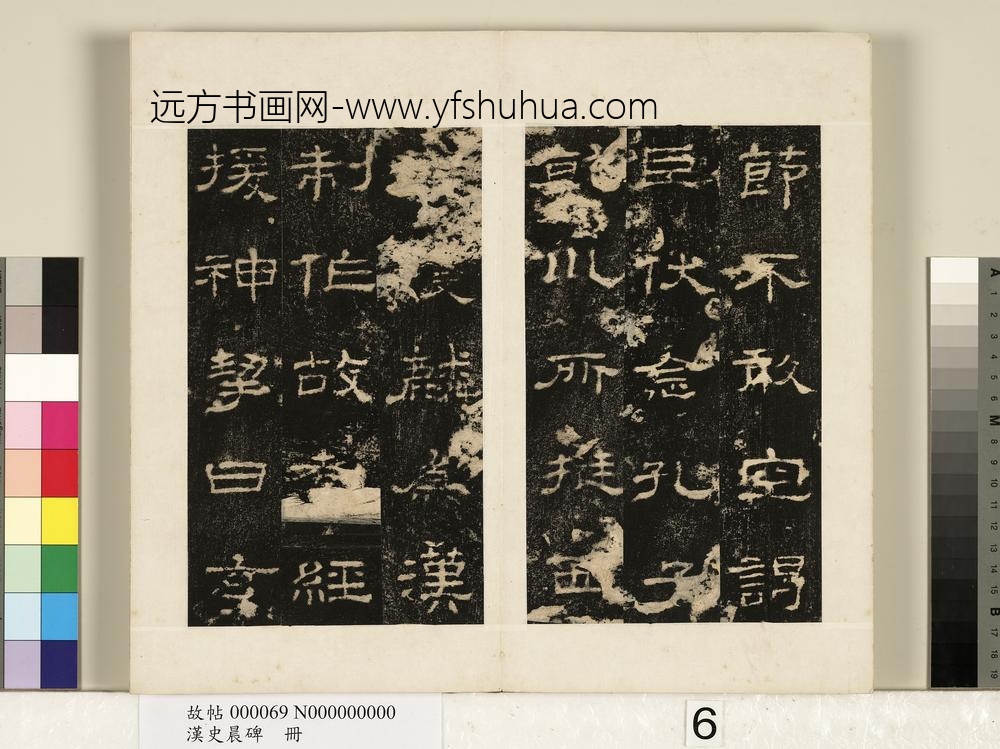 远方书画网-www.yfshuhua.com
節不敢空謁
臣伏念孔子
乾巛所挺西
麟為漢
制作故孝經
援神挈曰玄
故帖 000069 N000000000
漢史晨碑 冊
6
A 1 2 3 4 5 6 M 8 9 10 11 12 13 14 15 B 17 18 19